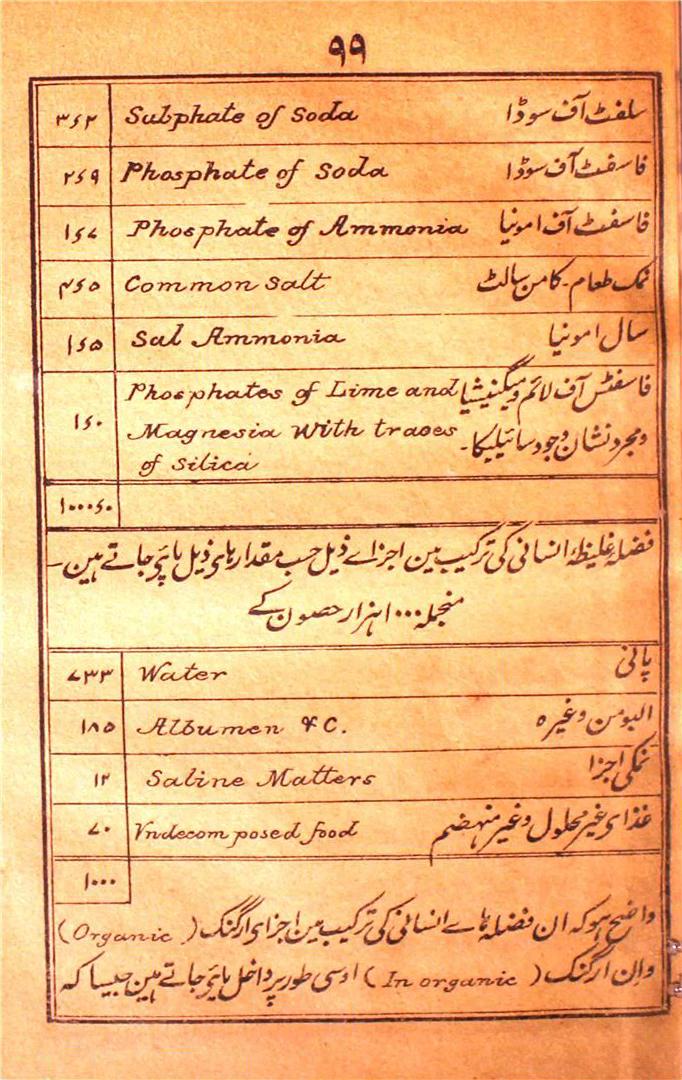 ۹۹
سلفٹ آف سوڈا Sulphate of Soda ۳ء۲
فاسفٹ آف سوڈا Phosphate of Soda ۲ء۹
فاسفٹ آف امونیا Phosphate of Ammonia ۱ء۷
نمک طعام۔ کامن سالٹ Common Salt ۴ء۵
سال امونیا Sal Ammonia ۱ء۵
فاسفٹس آف لائم و میگنیشیا Phosphates of Lime and
و مجرد نشان وجود سائیلیکا۔ Magnesia With traces ۱ء۰
of Silica
۱۰۰۰ء۰
فضلہ غلیظۂ انسانی کی ترکیب مین اجزاے ذیل حسب مقدار ہای ذیل پائے جاتے ہین۔
منجملہ ۱۰۰۰ ہزار حصون کے
پانی Water ۷۳۳
البومن وغیرہ Albumen &C. ۱۸۵
نمکی اجزا Saline Matters ۱۲
غذای غیر محلول و غیر منہضم Undecomposed food ۷۰
۱۰۰۰
واضح ہو کہ ان فضلہ ہاے انسانی کی ترکیب مین اجزای ارگنک (Organic)
و ان ارگنک (In organic) اوسی طور پر داخل پائے جاتے ہین جیسا کہ